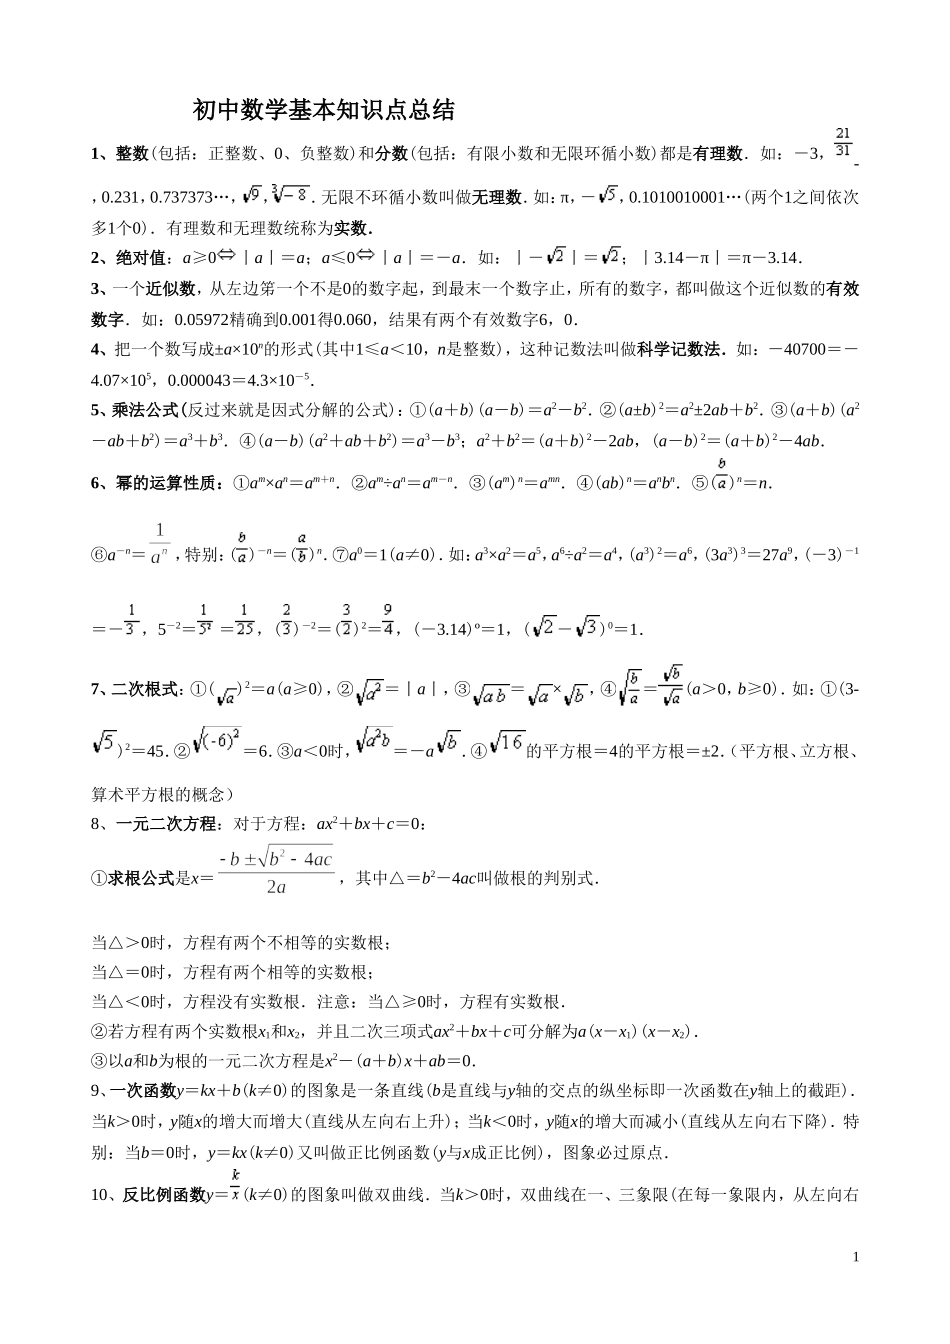 初中数学基本知识点总结
1、整数(包括：正整数、0、负整数)和分数(包括：有限小数和无限环循小数)都是有理数．如：－3，21/31-
，0.231，0.737373…，√9，³√－8．无限不环循小数叫做无理数．如：π，－√5，0.1010010001…(两个1之间依次
多1个0)．有理数和无理数统称为实数．
2、绝对值：a≥0⇔丨a丨＝a；a≤0⇔丨a丨＝－a．如：丨－√2丨＝√2；丨3.14－π丨＝π－3.14．
3、一个近似数，从左边笫一个不是0的数字起，到最末一个数字止，所有的数字，都叫做这个近似数的有效
数字．如：0.05972精确到0.001得0.060，结果有两个有效数字6，0．
4、把一个数写成±a×10ⁿ的形式(其中1≤a＜10，n是整数)，这种记数法叫做科学记数法．如：－40700＝－
4.07×10⁵，0.000043＝4.3×10⁻⁵．
5、乘法公式(反过来就是因式分解的公式)：①(a＋b)(a－b)＝a²－b²．②(a±b)²＝a²±2ab＋b²．③(a＋b)(a²
－ab＋b²)＝a³＋b³．④(a－b)(a²＋ab＋b²)＝a³－b³；a²＋b²＝(a＋b)²－2ab，(a－b)²＝(a＋b)²－4ab．
6、幂的运算性质：①aᵐ×aⁿ＝aᵐ⁺ⁿ．②aᵐ÷aⁿ＝aᵐ⁻ⁿ．③(aᵐ)ⁿ＝aᵐⁿ．④(ab)ⁿ＝aⁿbⁿ．⑤(b/a)ⁿ＝n．
⑥a⁻ⁿ＝1/aⁿ，特别：(b/a)⁻ⁿ＝(a/b)ⁿ．⑦a⁰＝1(a≠0)．如：a³×a²＝a⁵，a⁶÷a²＝a⁴，(a³)²＝a⁶，(3a³)³＝27a⁹，(－3)⁻¹
＝－1/3，5⁻²＝1/5²＝1/25，(2/3)⁻²＝(3/2)²＝9/4，(－3.14)º＝1，(√2－√3)⁰＝1．
7、二次根式：①(√a)²＝a(a≥0)，②√a²＝丨a丨，③√ab＝√a×√b，④√(b/a)＝√b/√a(a＞0，b≥0)．如：①(3-
√5)²＝45．②√(-6)²＝6．③a＜0时，√a²b＝－a√b．④√16的平方根＝4的平方根＝±2．（平方根、立方根、
算术平方根的概念）
8、一元二次方程：对于方程：ax²＋bx＋c＝0：
①求根公式是x＝(-b±√(b²-4ac))/2a，其中△＝b²－4ac叫做根的判别式．
当△＞0时，方程有两个不相等的实数根；
当△＝0时，方程有两个相等的实数根；
当△＜0时，方程没有实数根．注意：当△≥0时，方程有实数根．
②若方程有两个实数根x₁和x₂，并且二次三项式ax²＋bx＋c可分解为a(x－x₁)(x－x₂)．
③以a和b为根的一元二次方程是x²－(a＋b)x＋ab＝0．
9、一次函数y＝kx＋b(k≠0)的图象是一条直线(b是直线与y轴的交点的纵坐标即一次函数在y轴上的截距)．
当k＞0时，y随x的增大而增大(直线从左向右上升)；当k＜0时，y随x的增大而减小(直线从左向右下降)．特
别：当b＝0时，y＝kx(k≠0)又叫做正比例函数(y与x成正比例)，图象必过原点．
10、反比例函数y＝k/x(k≠0)的图象叫做双曲线．当k＞0时，双曲线在一、三象限(在每一象限内，从左向右
1